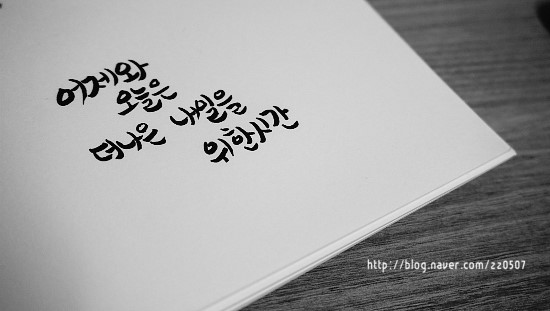 어제와
오늘은
더나은 내일을
위한시간
http://blog.naver.com/zz0507